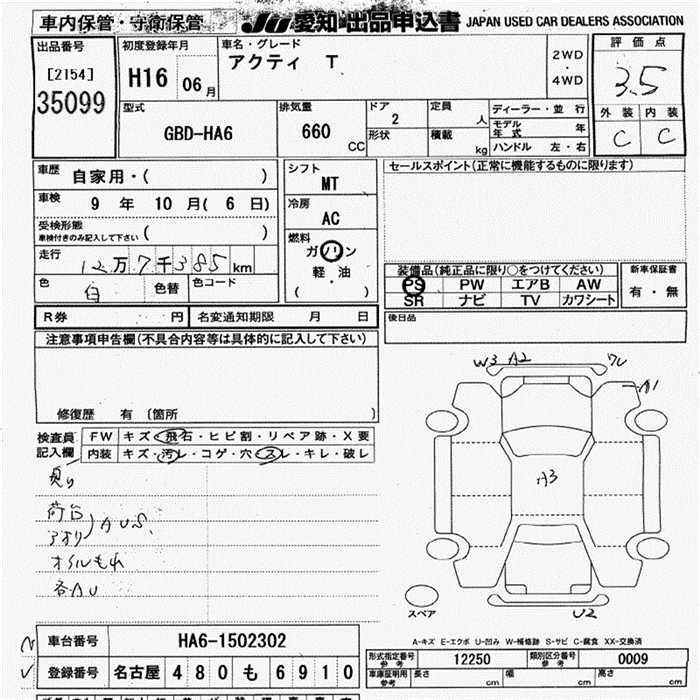 車内保管・守衛保管 JU 愛知・出品申込書 JAPAN USED CAR DEALERS ASSOCIATION
出品番号 初度登録年月 車名・グレード 評価点
[2154] H16 06月 アクティ T 2WD・4WD 3.5
35099 型式 排気量 ドア 定員 ディーラー・並行 外装 内装
GBD-HA6 660 CC 2 人 モデル年式 年 C C
形状 積載 kg ハンドル 左・右
車歴 自家用・( ) シフト セールスポイント(正常に機能するものに限ります)
MT
車検 9 年 10 月( 6 日) 冷房
AC
受検形態
車検付きのみ記入して下さい ( ) 燃料
走行 12万7千385km ガソリン
軽・油
( )
装備品(純正品に限り○をつけてください) 新車保証書
色 白 色替 色コード PS PW エアB AW 有・無
SR ナビ TV カワシート
R券 円 名変通知期限 月 日 後日品
注意事項申告欄(不具合内容等は具体的に記入して下さい)
W3 A2
A1
修復歴 有 〔箇所 〕
検査員 FW キズ・飛石・ヒビ割・リペア跡・X要
記入欄 内装 キズ・汚レ・コゲ・穴・スレ・キレ・破レ
A3
荷台
アオリ AUS
オイルもれ
各AU
スペア U2
A-キズ E-エクボ U-凹み W-補修跡 S-サビ C-腐食 XX-交換済
車台番号 HA6-1502302
型式指定番号 参考 12250 類別区分番号 参考 0009
登録番号 名古屋 480 も 6910
車庫証明用 参考 長さ cm 幅 cm 高さ cm